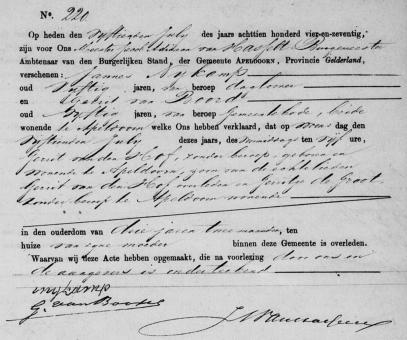 No. 220.
Op heden den vyftienden July des jaars achttien honderd vier-en-zeventig,
zijn voor Ons Meester van Hasselt Burgemeester
Ambtenaar van den Burgerlijken Stand, der Gemeente APELDOORN, Provincie Gelderland,
verschenen: Jannes Nykamp
oud vyftig jaren, van beroep daglooner en
Gerrit van Boords
oud vyftig jaren, van beroep Gemeentebode, beide
wonende te Apeldoorn welke Ons hebben verklaard, dat op woensdag den
vyftienden July dezes jaars, des ure,
Gerrit van den Hof, zonder beroep, geboren en
wonende te Apeldoorn, zoon van de echtelieden
Gerrit van den Hof overleden en Gerritje de Groot,
zonder beroep te Apeldoorn wonende
in den ouderdom van drie jaren twee maanden, ten
huize van zyne moeder binnen deze Gemeente is overleden.
Waarvan wij deze Acte hebben opgemaakt, die na voorlezing door ons en
de aangevers is onderteekend
G. van Boords